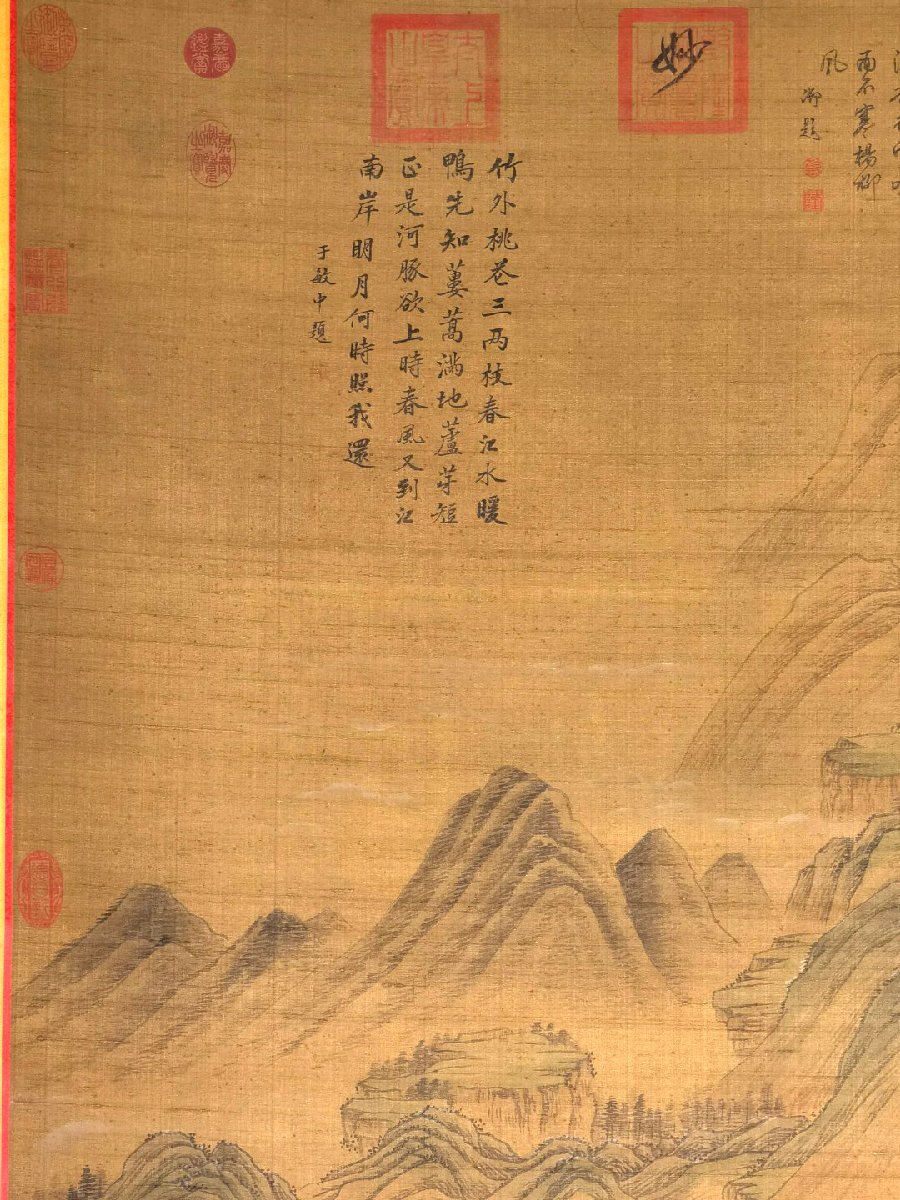 面不寒楊柳
風
御題
妙
竹外桃花三兩枝春江水暖
鴨先知蔞蒿滿地蘆芽短
正是河豚欲上時春風又到江
南岸明月何時照我還
于敏中題
嘉慶鑑賞
嘉慶御覽之寶